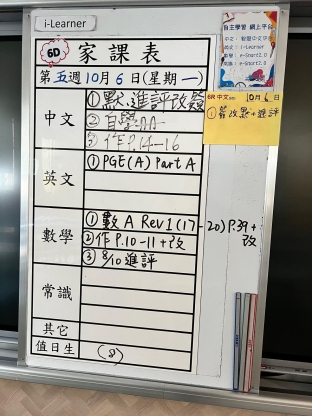 i-Learner
6D 家課表
第五週10月6日(星期一)
中文
①默、進評改簽
②自學
③作P.14-16
英文
①PGE(A) Part A
數學
①數A Rev1(17-20)P.39+改
②作P.10-11+改
③8/10進評
常識
其它
值日生
(8)
自主學習 網上平台
i-Learner
e-Smart2.0
e-Smart2.0
6R 中文
10月6日